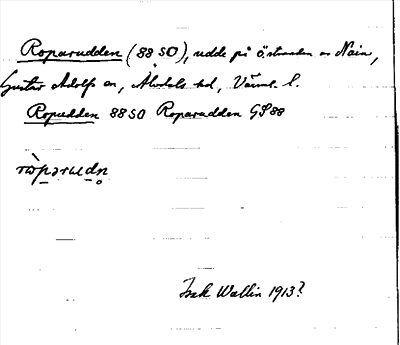 Roparudden (88 SO), udde på östranden av Nain,
Gustav Adolfs sn, Älvdals hd, Värml. l.
Ropudden 88 SO Roparudden GS 88
Isak Wallin 1913?